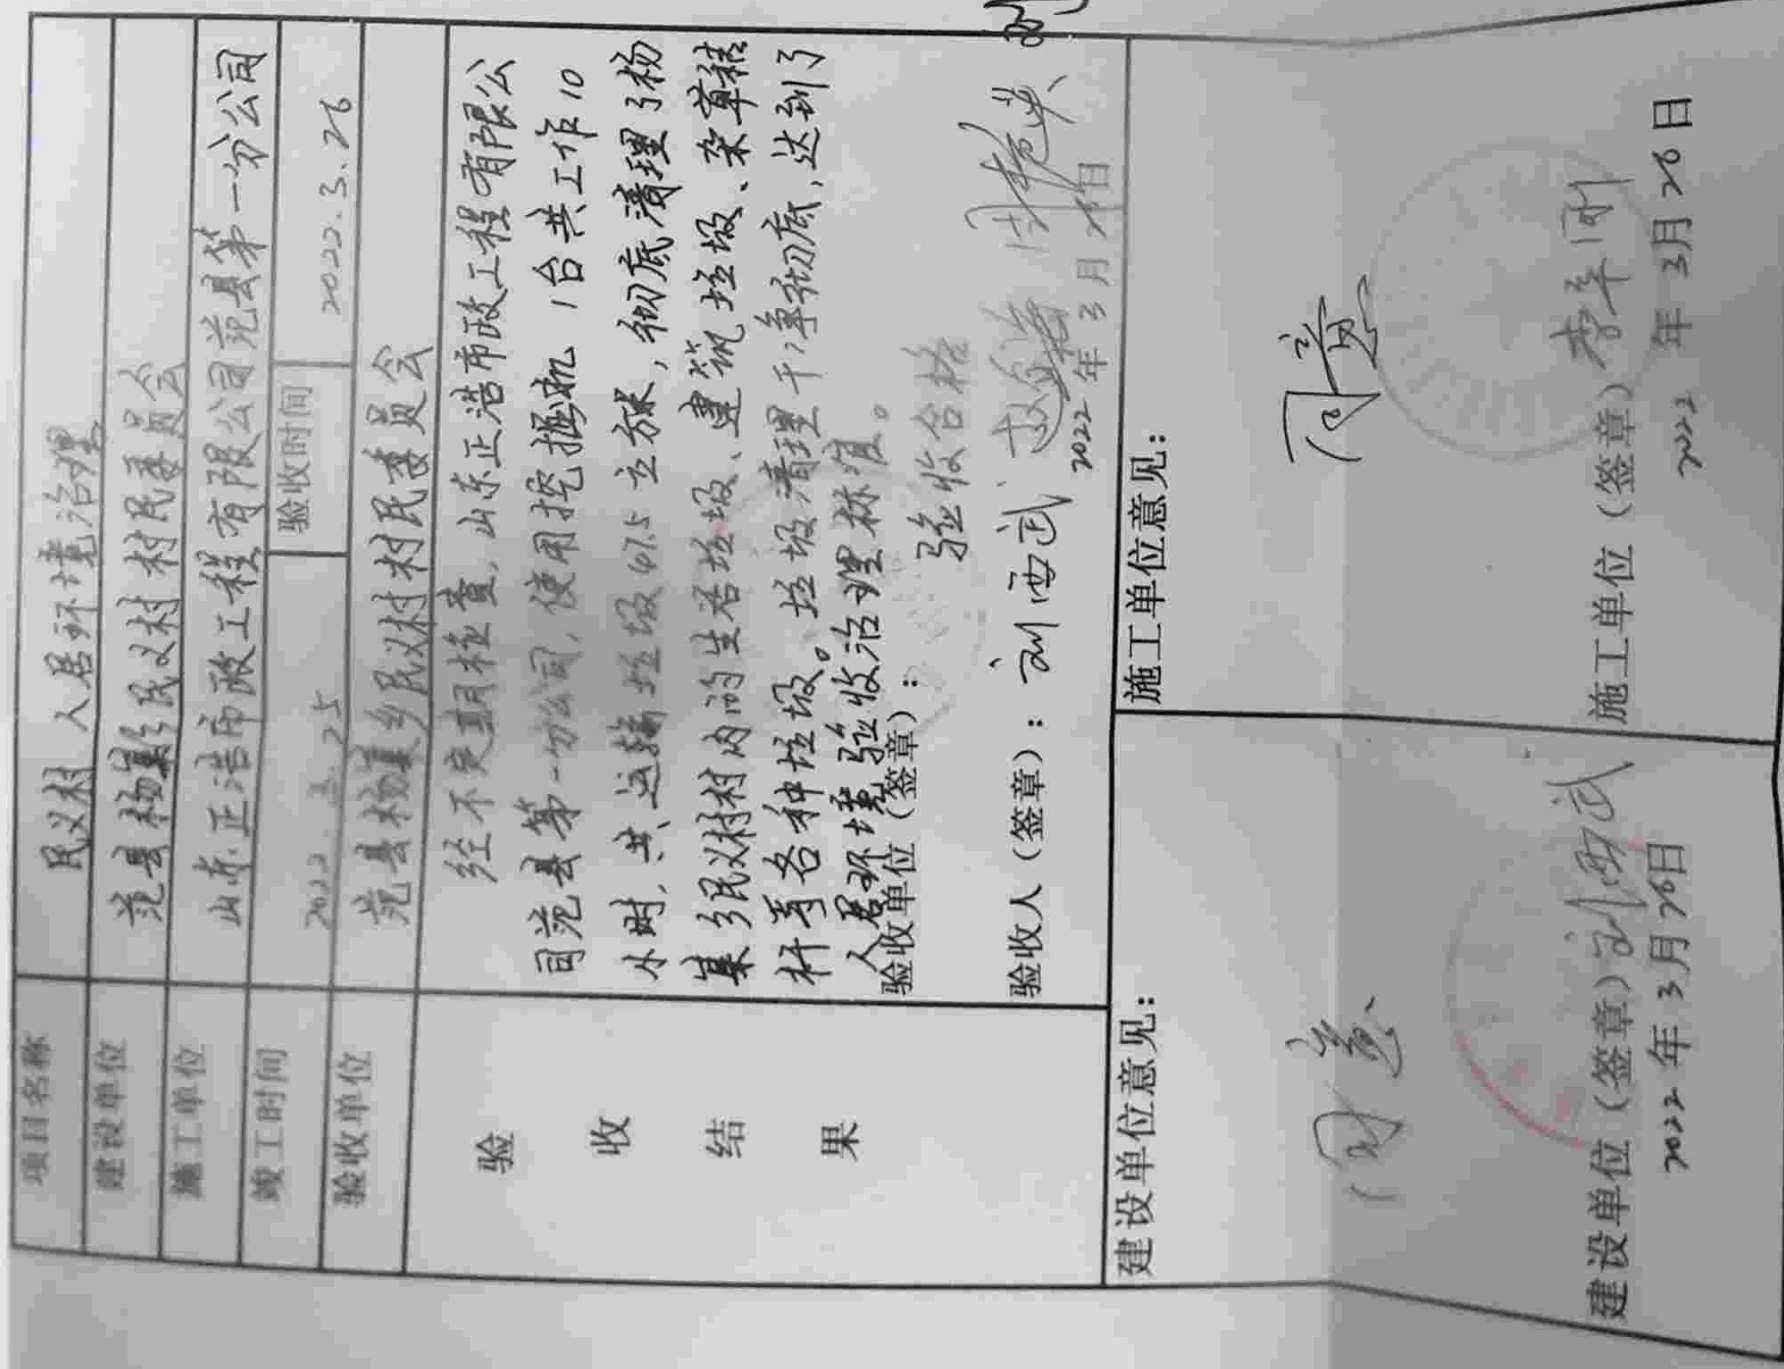 项目名称 民义村人居环境治理
建设单位 范县杨集乡民义村村民委员会
施工单位 山东正浩市政工程有限公司范县第一分公司
竣工时间 2022.3.25 验收时间 2022.3.26
验收单位 范县杨集乡民义村村民委员会
验收结果
经不定期检查,山东正浩市政工程有限公
司范县第一分公司,使用挖掘机1台共工作10
小时,共运输垃圾67.5立方米,彻底清理了杨
集乡民义村村内的生活垃圾、建筑垃圾、杂草秸
秆等各种垃圾。垃圾清理干净彻底,达到了
人居环境验收治理标准。
验收单位(签章):
验收合格
验收人(签章):刘西武
2022年3月26日
建设单位意见: 施工单位意见:
同意 同意
建设单位(签章)刘西武 施工单位(签章)李刚
2022年3月26日 2022年3月26日